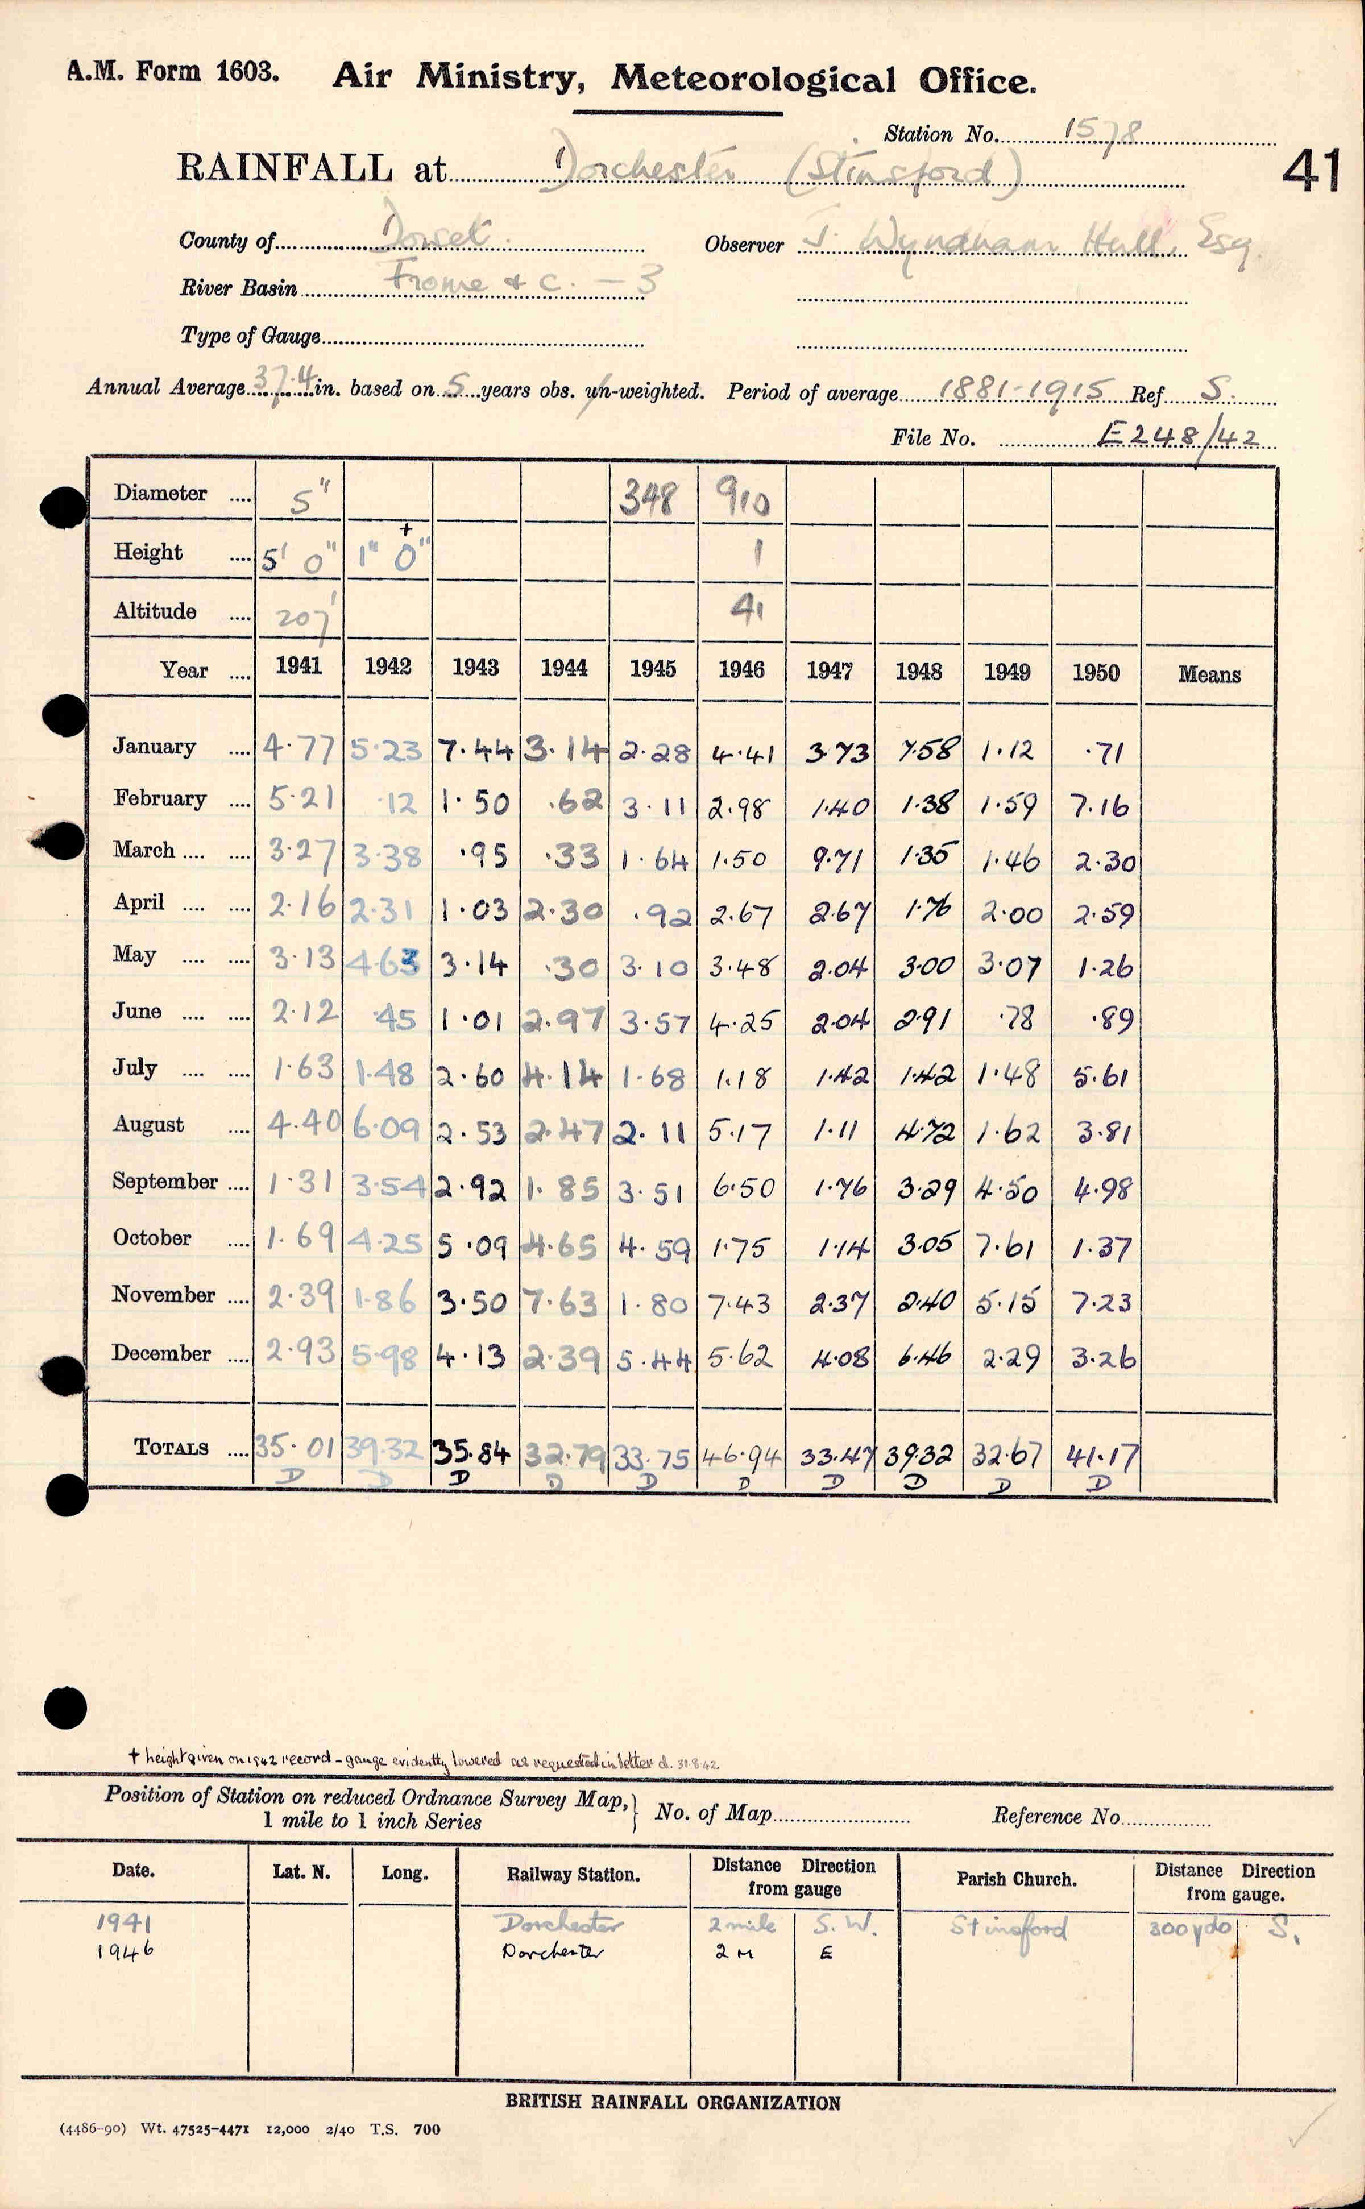 A.M. Form 1603. Air Ministry, Meteorological Office.
Station No. 1578
RAINFALL at Dorchester (Stinsford)
41
County of Dorset. Observer J. Wyndham Hull, Esq.
River Basin Frome & c. - 3
Type of Gauge
Annual Average 37.4 in. based on 5 years obs. un-weighted. Period of average 1881-1915 Ref S.
File No. E248/42
Diameter .... 5" 348 910
Height .... 5' 0" 1" 0" + 1
Altitude .... 207' 41
Year .... 1941 1942 1943 1944 1945 1946 1947 1948 1949 1950 Means
January .... 4.77 5.23 7.44 3.14 2.28 4.41 3.73 7.58 1.12 .71
February .... 5.21 .12 1.50 .62 3.11 2.98 1.40 1.38 1.59 7.16
March .... .... 3.27 3.38 .95 .33 1.64 1.50 9.71 1.35 1.46 2.30
April .... .... 2.16 2.31 1.03 2.30 .92 2.67 2.67 1.76 2.00 2.59
May .... .... 3.13 4.63 3.14 .30 3.10 3.48 2.04 3.00 3.07 1.26
June .... .... 2.12 .45 1.01 2.97 3.57 4.25 2.04 2.91 .78 .89
July .... .... 1.63 1.48 2.60 4.14 1.68 1.18 1.42 1.42 1.48 5.61
August .... 4.40 6.09 2.53 2.47 2.11 5.17 1.11 4.72 1.62 3.81
September .... 1.31 3.54 2.92 1.85 3.51 6.50 1.76 3.29 4.50 4.98
October .... 1.69 4.25 5.09 4.65 4.59 1.75 1.14 3.05 7.61 1.37
November .... 2.39 1.86 3.50 7.63 1.80 7.43 2.37 2.40 5.15 7.23
December .... 2.93 5.98 4.13 2.39 5.44 5.62 4.08 6.46 2.29 3.26
TOTALS .... 35.01 39.32 35.84 32.79 33.75 46.94 33.47 39.32 32.67 41.17
D D D D D D D D D D
+ height given on 1942 record - gauge evidently lowered as requested in letter d. 31.8.42
Position of Station on reduced Ordnance Survey Map, 1 mile to 1 inch Series } No. of Map Reference No
Date. Lat. N. Long. Railway Station. Distance Direction from gauge Parish Church. Distance Direction from gauge.
1941 Dorchester 2 mile S.W. Stinsford 300 yds S.
1946 Dorchester 2 M E
BRITISH RAINFALL ORGANIZATION
(4486-90) Wt. 47525-4471 12,000 2/40 T.S. 700